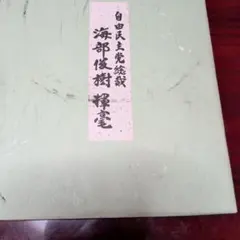 自由民主党総裁
海部俊樹 揮毫